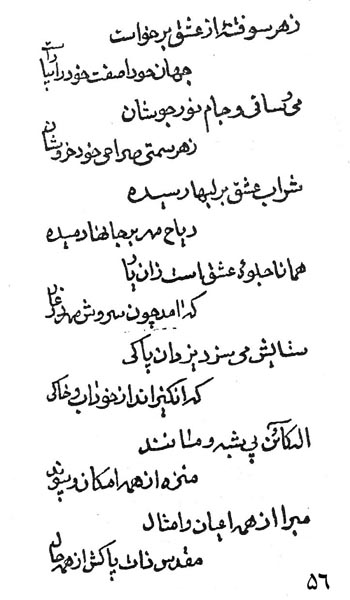 زهر سو فتنهٔ از عشق برخواست
جهان خود را صفت خود را بیاراست
می و ساقی و جام نور جوشان
زهر سمتی صراحی خود خروشان
شراب عشق بر لبها رسیده
ریاح مهر بر جانها دمیده
همانا جلوهٔ عشق است زان یار
که آمد چون سروش مهر
ستایش می سزد یزدان پاکی
که انگیزاند از خود آب و خاکی
اله کائن بی شبه و مانند
منزه از همه امکان و پیوند
مبرا از همه اعیان و امثال
مقدس ذات پاکش از همه حال
۵۶